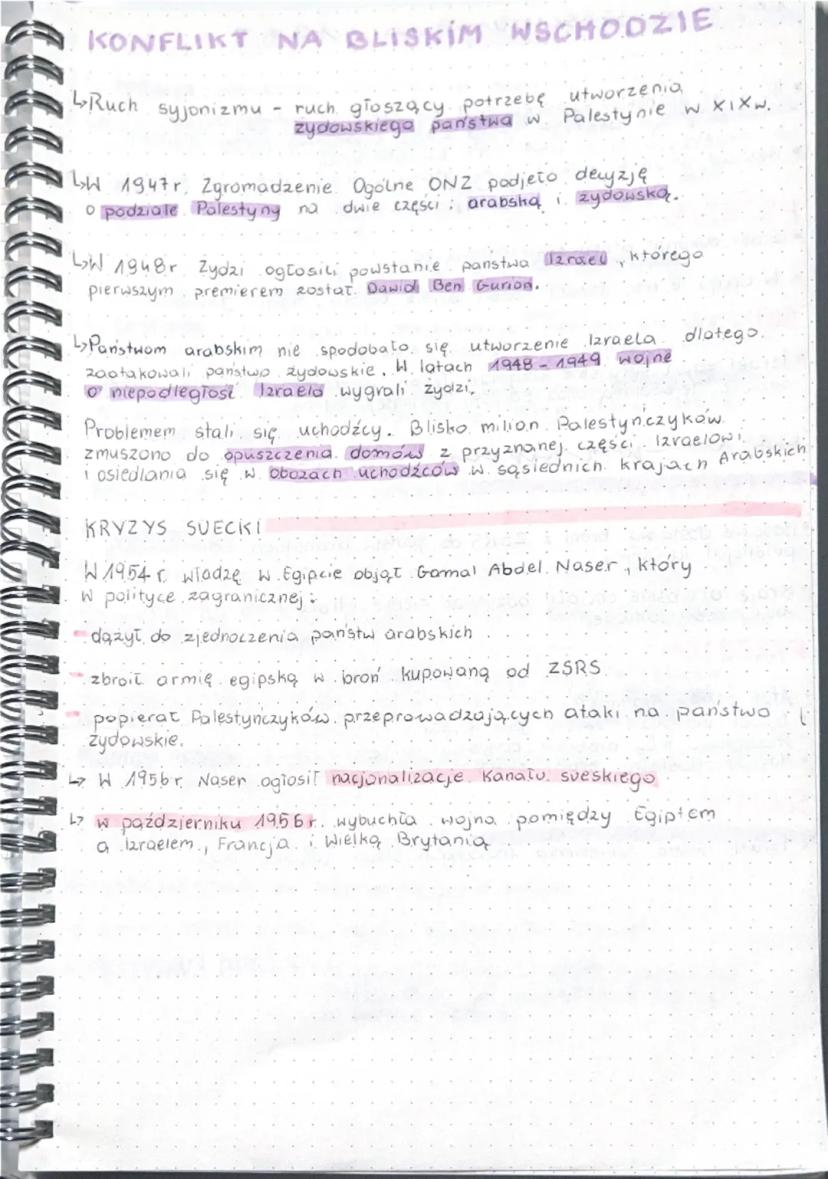 KONFLIKT NA BLISKIM WSCHODZIE
↳Ruch syjonizmu – ruch głoszący potrzebę utworzenia
żydowskiego państwa w Palestynie w XIXw.
↳W 1947r. Zgromadzenie Ogólne ONZ podjęto decyzję
o podziale Palestyny na dwie części: arabską i żydowską.
↳W 1948r Żydzi ogłosili powstanie państwa Izrael, którego
pierwszym premierem został Dawid Ben Gurion.
↳Państwom arabskim nie spodobało się utworzenie Izraela dlatego
zaatakowali państwo żydowskie. W latach 1948-1949 wojnę
o niepodległość Izraela wygrali żydzi.
Problemem stali się uchodźcy. Blisko milion Palestyńczyków
zmuszono do opuszczenia domów z przyznanej części Izraelowi
i osiedlania się w obozach uchodźców w sąsiednich krajach Arabskich
KRYZYS SUECKI
W 1954r. władzę w Egipcie objął Gamal Abdel Naser, który
w polityce zagranicznej:
- dążył do zjednoczenia państw arabskich
- zbroił armię egipską w broń kupowaną od ZSRS
- popierał Palestyńczyków przeprowadzających ataki na państwo
żydowskie.
↳ W 1956r Naser ogłosił nacjonalizacje Kanału sueskiego
↳ w październiku 1956r. wybuchła wojna pomiędzy Egiptem
a Izraelem, Francja i Wielką Brytanią